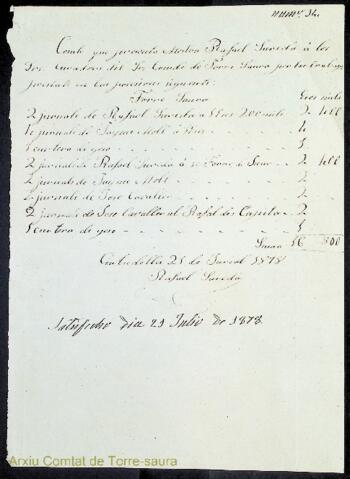 num.º 34.
Conte que presenta Mestre Rafael Juveda á los
Srs. Curadors del Sr. Conde de Torre Saura per los trabays
prestats en las posesions siguents.
Torre Saura Escs mils
2 jornals de Rafael Juveda á 1 Esc 200 mils 2 400
4 jornals de Jayme Moll á 4
1 cuartera de geso 1
2 jornals de Rafael Juveda á se Torre de 2 400
2 jornals de Jayme Moll 2
2 jornals de Jose Cavaller 2
2 jornals de Jose Cavaller al Rafal des Capita 2
1 cuartera de geso 1
Suma 16 800
Ciutadella 21 de 1878
Rafael Juveda
Satisfecho dia 21 Julio de 1878
Arxiu Comtat de Torre-saura